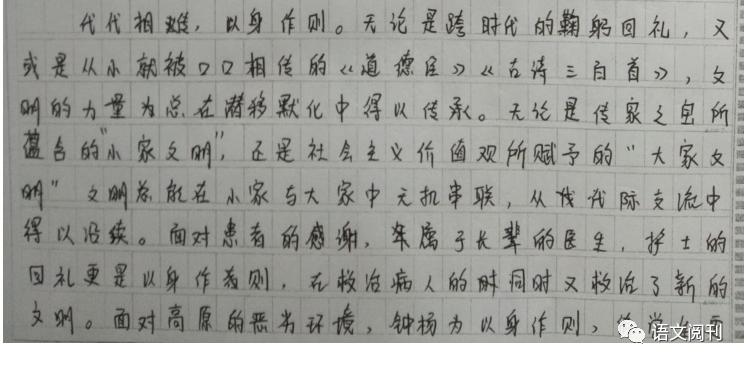 代代相难，以身作则。无论是跨时代的鞠躬回礼，又
或是从小就被口口相传的《道德经》《古诗三百首》，文
明的力量为总在潜移默化中得以传承。无论是传家之宝所
蕴含的“小家文明”，还是社会主义价值观所赋予的“大家文
明”文明总能在小家与大家中无机串联，从代代际交流中
得以沿续。面对患者的感谢，本属于长辈的医生，护士的
回礼更是以身作为则，在救治病人的时同时又救治了新的
文明。面对高原的恶劣环境，钟扬为以身作则，
语文阅刊